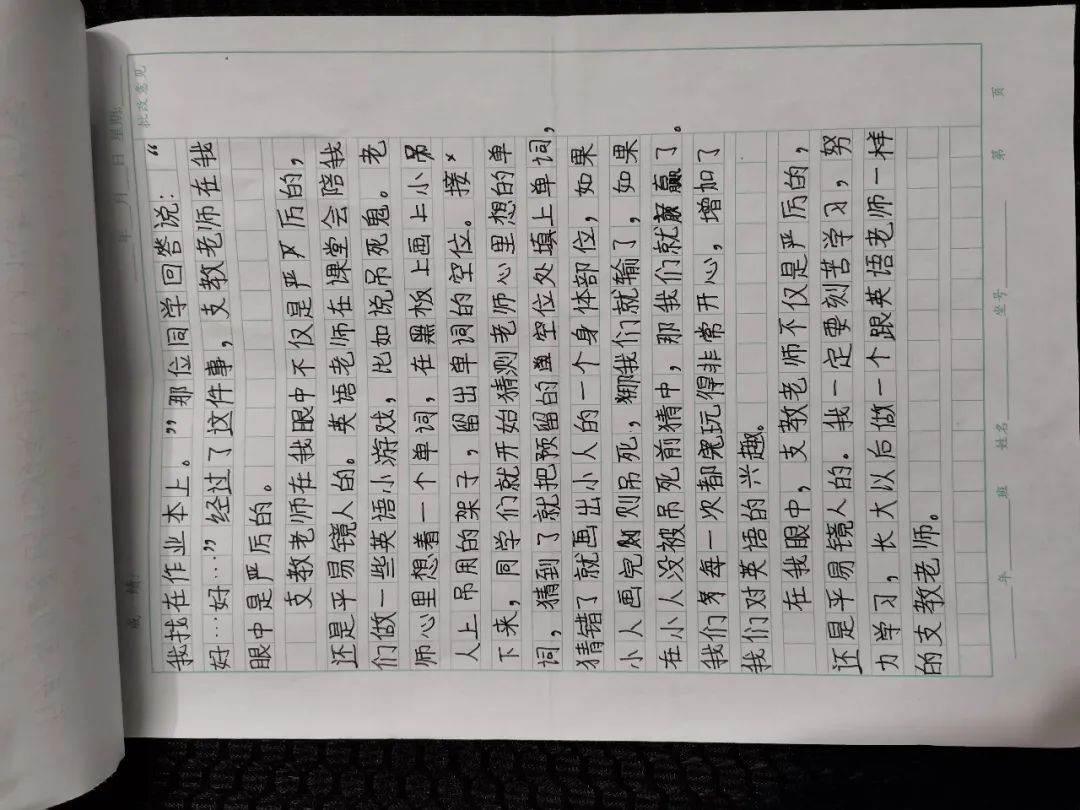 成 绩:
年 月 日 星期:
批改意见
我找在作业本上。”那位同学回答说：“
好……好……”经过了这件事，支教老师在我
眼中是严厉的。
支教老师在我眼中不仅是严厉的，
还是平易镜人的。英语老师在课堂会陪我
们做一些英语小游戏，比如说吊死鬼。老
师心里想着一个单词，在黑板上画上小吊
人上吊用的架子，留出单词的空位。接
下来，同学们就开始猜测老师心里想的单
词，猜到了就把预留的空位处填上单词，
猜错了就画出小人的一个身体部位，如果
小人画完则吊死，那我们就输了，如果
在小人没被吊死前猜中，那我们就赢了。
我们每一次都玩得非常开心，增加了
我们对英语的兴趣。
在我眼中，支教老师不仅是严厉的，
还是平易镜人的。我一定要刻苦学习，努
力学习，长大以后做一个跟英语老师一样
的支教老师。
年 班 姓名 坐号 第 页